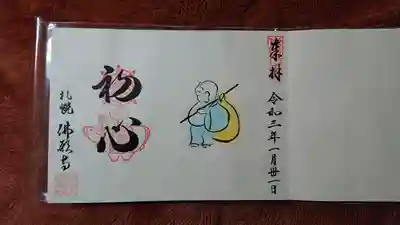 奉拝
令和三年一月卅一日
初心
札幌 佛願寺